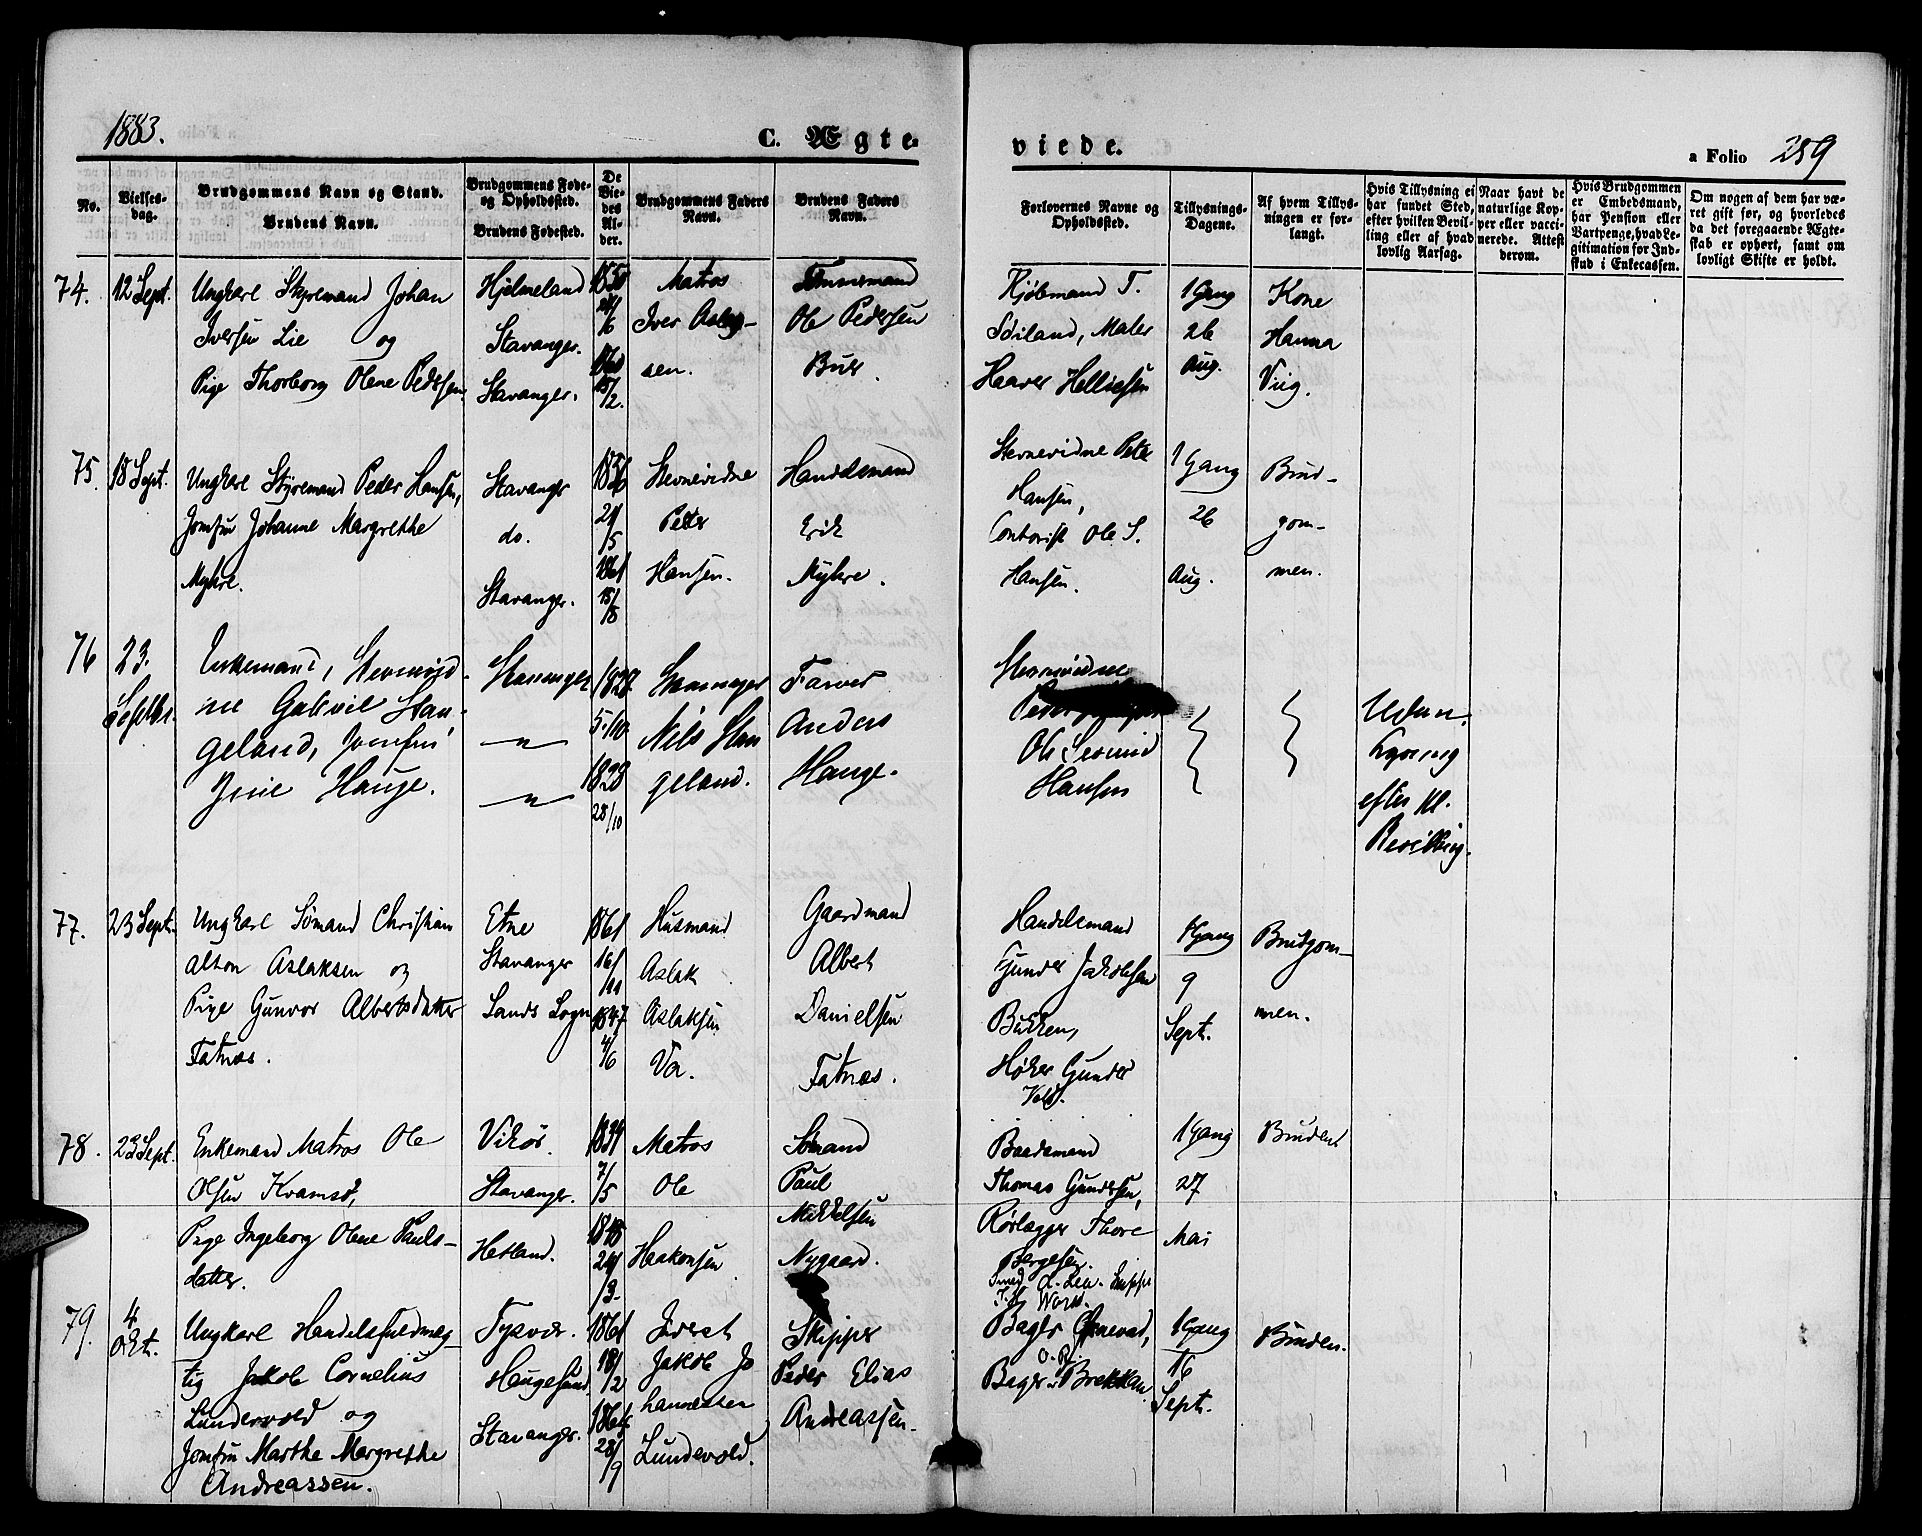 1883.
C. Ægte-
viede.
a Folio 259
No.
Vielses-
dag.
Brudgommens Navn og Stand.
Brudens Navn.
Brudgommens Føde-
og Opholdssted.
Brudens Fødested.
De
Vie-
des
Al-
der.
Brudgommens Faders
Navn.
Brudens Faders
Navn.
Forlovernes Navne og
Opholdssted.
Tillysnings-
Dagene.
Af hvem Tillys-
ningen er for-
langt.
Hvis Tillysning ei
har fundet Sted,
efter hvilken Bevil-
ling eller af hvad
lovlig Aarsag.
Naar havt de
naturlige Kop-
per eller vacci-
nerede. Attest
derom.
Hvis Brudgommen
er Embedsmand,
har Pension eller
Vartpenge, hvad Le-
gitimation for Ind-
skud i Enkecassen.
Om nogen af dem har væ-
ret gift før, og hvorledes
da det foregaaende Ægte-
skab er ophørt, samt om
lovligt Skifte er holdt.
74.
12 Sept.
Ungkarl Styremand Johan
Iversen Lie og
Pige Thorborg Olene Pedersen
Hjelmeland
Stavanger.
Stavanger.
1850
24/6
1860
15/2.
Matros
Iver Aslag-
sen.
Tømmermand
Ole Pedersen
Bue
Kjøbmand T.
Søiland, Maler
Haaver Helliesen
1 Gang
26
Aug.
Kone
Hanna
Viig.
75.
18 Sept.
Ungkarl Styremand Peder Hansen,
Jomfru Johanne Margrethe
Mykre.
Stavanger
do.
Stavanger.
1856
21/5
1861
15/8
Stevnevidne
Peter
Hansen.
Handelsmand
Erik
Mykre.
Stevnevidne Peter
Hansen,
Contorist Ole S.
Hansen.
1 Gang
26
Aug.
Brud-
gom-
men.
76
23.
Septbr.
Enkemand, Stevnevid-
ne Gabriel Stan-
geland, Jomfru
Jenie Hauge.
Stavanger
"
"
1828
5/10
1828
28/10
Nils Stan
geland.
Farver
Anders
Hauge.
Stevnevidne
Ole Severin
Hansen
Uden
Lysning
efter Kl.
Bevilling.
77.
23 Sept.
Ungkarl Sømand Christian
Alton Aslaksen og
Pige Gunvor Albertsdatter
Fatnæs.
Etne
Stavanger
Sands Sogn
1861
16/11
1847
4/6
Husmand
Aslak
Aslaksen
Va.
Gaardmand
Albert
Danielsen
Fatnæs.
Handelsmand
Gunder Jakobsen
Bukken,
Høker Gunder
Vold.
1 Gang
9
Sept.
Brudgom-
men.
78.
23 Sept.
Enkemand Matros Ole
Olsen Kvamsø,
Pige Ingeborg Olene Pauls-
datter.
Vikør.
Stavanger.
Hetland.
1839
7/5
1848
24/3.
Matros
Ole
Haakonsen
Sømand
Paul
Mikkelsen
Nygaard.
Baadsmand
Thomas Gundersen,
Rørlægger Thore
Børgesen.
1 Gang
27
Mai
Bruden
79.
4
Okt.
Ungkarl Handelsfuldmæg-
tig Jakob Cornelius
Lundevold og
Jomfru Marthe Margrethe
Andreassen.
Tysvær.
Haugesund.
Stavanger.
1861
18/2
1864
28/9
Inderst
Jakob Jo
hannessen
Lundevold.
Skipper
Peder Elias
Andreassen.
Bager Grønevad,
Bager Brekkan
1 Gang
16
Sept.
Bruden.